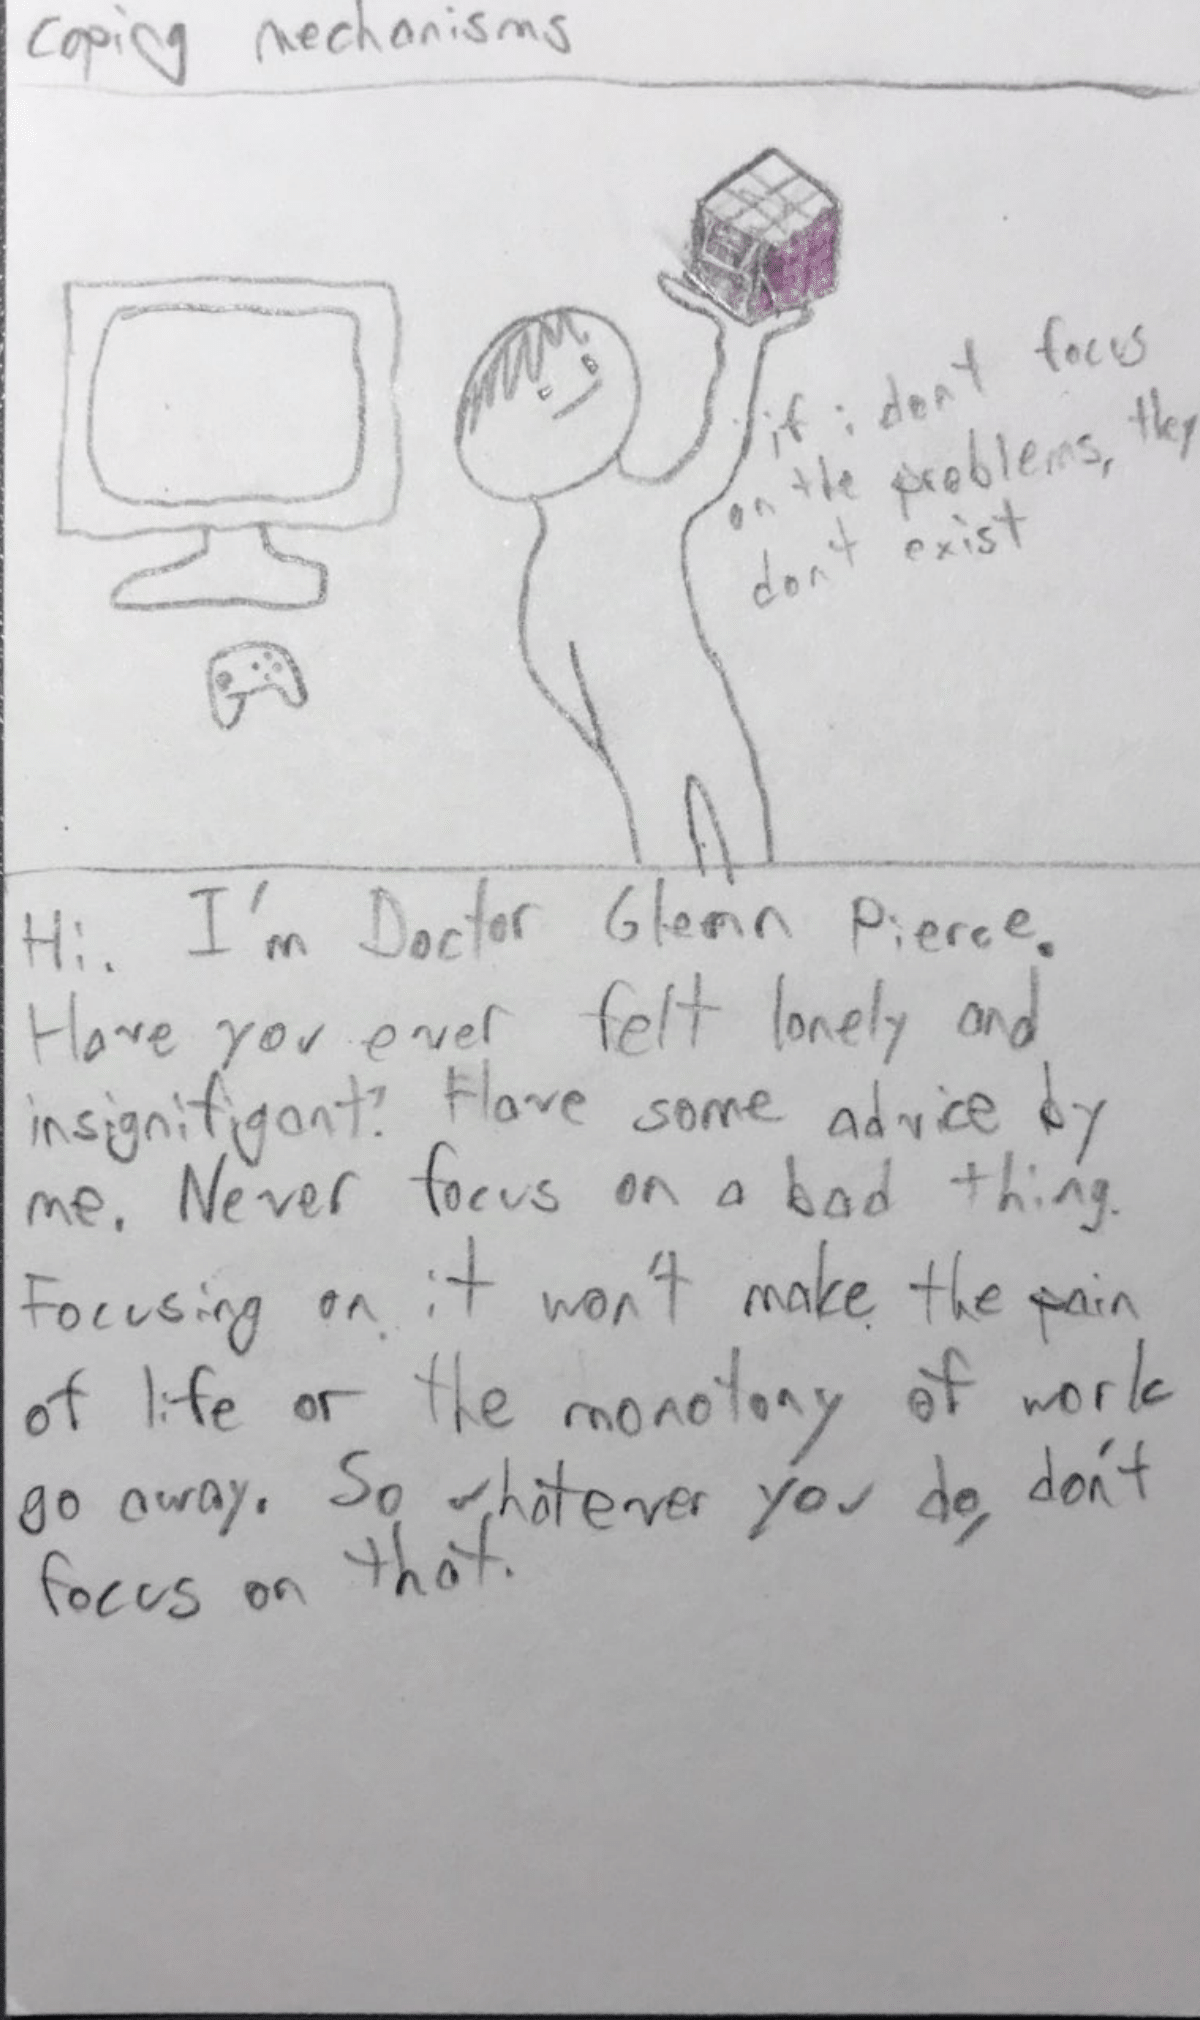 Coping mechanisms
if i don't focus
on the problems, they
don't exist
Hi. I'm Doctor Glenn Pierce.
Have you ever felt lonely and
insignifigant? Have some advice by
me. Never focus on a bad thing.
Focusing on it won't make the pain
of life or the monotony of work
go away. So whatever you do, don't
focus on that.